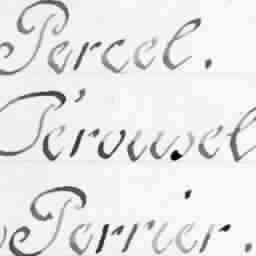 Percel.
Pérousel
Perrier.